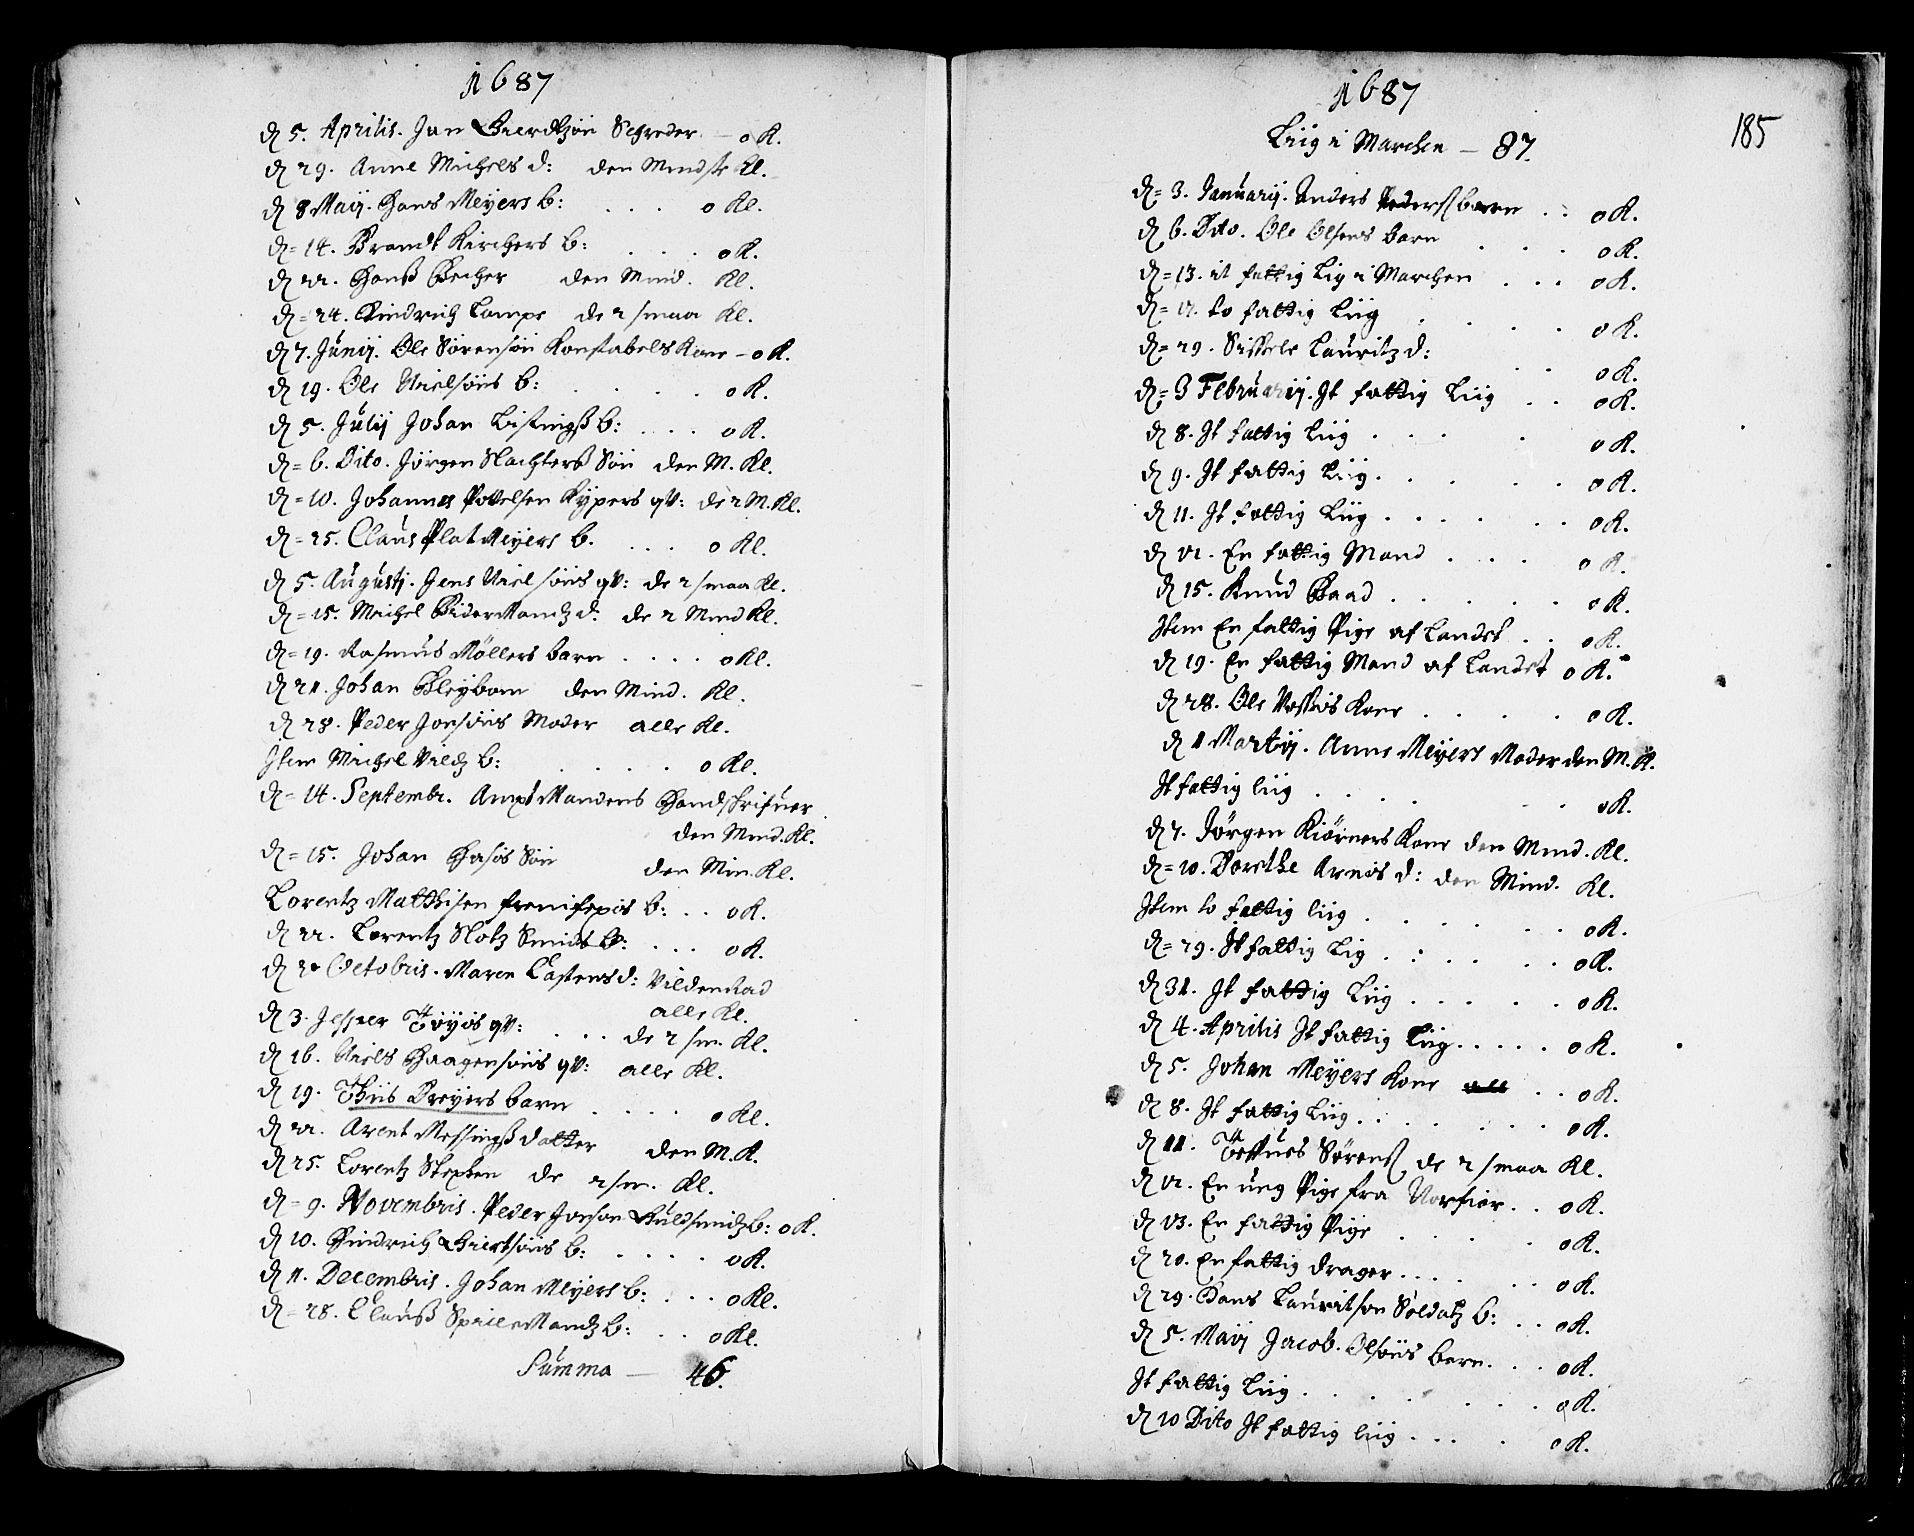 1687
d 5. Aprilis. Jan Gierdtzøn Schreder — o K.
d 29. Anne Michels d: den Mindste Kl.
d 8 Maij. Hans Meyers b: . . . o Kl.
d = 14. Brandt Kirchers b: . . . o K.
d 22. Hanß Becher den Mind. Kl.
d = 24. Hindrich Lampe de 2 smaa Kl.
d 7. Junij. Ole Sørensøn Konstabels Kone – o K.
d 19. Ole Nielsøns b: . . . . o K.
d 5. Julij Johan Listingß b: . . . o K.
d = 6. Dito. Jørgen Slachters Søn den M. Kl.
d = 10. Johannes Povelsen Kypers qv: de 2 M. Kl.
d = 25. Claus Plat Meyers b. . . . o Kl.
d 5. Augustj. Jens Nielsøns qv: de 2 smaa Kl.
d = 15. Michel Bidermandz d. de 2 Mind Kl.
d = 19. Rasmus Møllers barn . . . . o Kl.
d 21. Johan Bleybom den Mind. Kl.
d 28. Peder Jonsøns Moder alle Kl.
Item Michel Vildz b: . . . . o Kl.
d = 14. Septembr. Ampt Mandens Handskrifuer
den Mind. Kl.
d = 15. Johan Hasøs Søn den Min. Kl.
Lorentz Matthisen b: . . o K.
d 22. Lorentz Slotz Smids b: . . . o K.
d 2 Octobris. Maren Castens d: Vildenstad
alle Kl.
d 3. Jesper Tøyøs qv: . . . de 2 sm. Kl.
d 16. Niels Haagensøns qv: alle Kl.
d 19. Thiis Dreyers barn . . . . o Kl.
d 22. Arent Messingß datter den M. K.
d 25. Lorentz Stephen de 2 sm. Kl.
d = 9. Novembris. Peder Jonson Guldsmidz b: o K.
d 10. Hindrich Giertsøns b: . . . . o K.
d 11. Decembris. Johan Meyers b: . . . o Kl.
d = 28. Clauß Spillemandz b: . . o Kl.
Summa — 46.
185
1687
Liig i Marchen — 87.
d = 3. Januarij. Anders Pederß barn . . o K.
d 6. Dito. Ole Olsens barn . . . o K.
d = 13. it fattig Lig i Marchen . . . o K.
d = 17. to fattig Liig . . . . o K.
d = 29. Sissele Lauritz d: . . o K.
d = 3 Februarij. It fattig Liig . . o K.
d 8. It fattig Liig . . . . o K.
d 9. It fattig Liig . . . . . o K.
d 11. It fattig Liig . . . . . . o K.
d 12. En fattig Mand . . . . o K.
d 15. Knud Baad . . . . . o K.
Item En fattig Pige af Landet . . o K.
d 19. En fattig Mand af Landet o K.
d 28. Ole Kone . . . . o K.
d 1 Martij. Anne Meyers Moder den M. K.
It fattig liig . . . . . . o K.
d 7. Jørgen Kiørners Kone den Mind. Kl.
d = 10. Dorethe Arnøs d: den Mind. Kl.
Item to fattig liig . . . . . . o K.
d = 29. It fattig Lig . : . . . o K.
d 31. It fattig Liig . . . . . o K.
d 4. Aprilis It fattig Liig . . . . . o K.
d 5. Johan Meyers Kone . . o K.
d 8. It fattig Liig . . . . . . o K.
d 11. Sørenß de 2 smaa Kl.
d 12. En ung Pige fra Norfiør . . o K.
d 13. En fattig Pige . . . . o K.
d 20. En fattig drager . . . . . . o K.
d 29. Hans Lauritson Soldatz b: . . o K.
d 5. Maij Jacob Olsøns barn. . . o K.
It fattig Liig . . . . . . o K.
d 10 Dito It fattig liig . . . . o K.